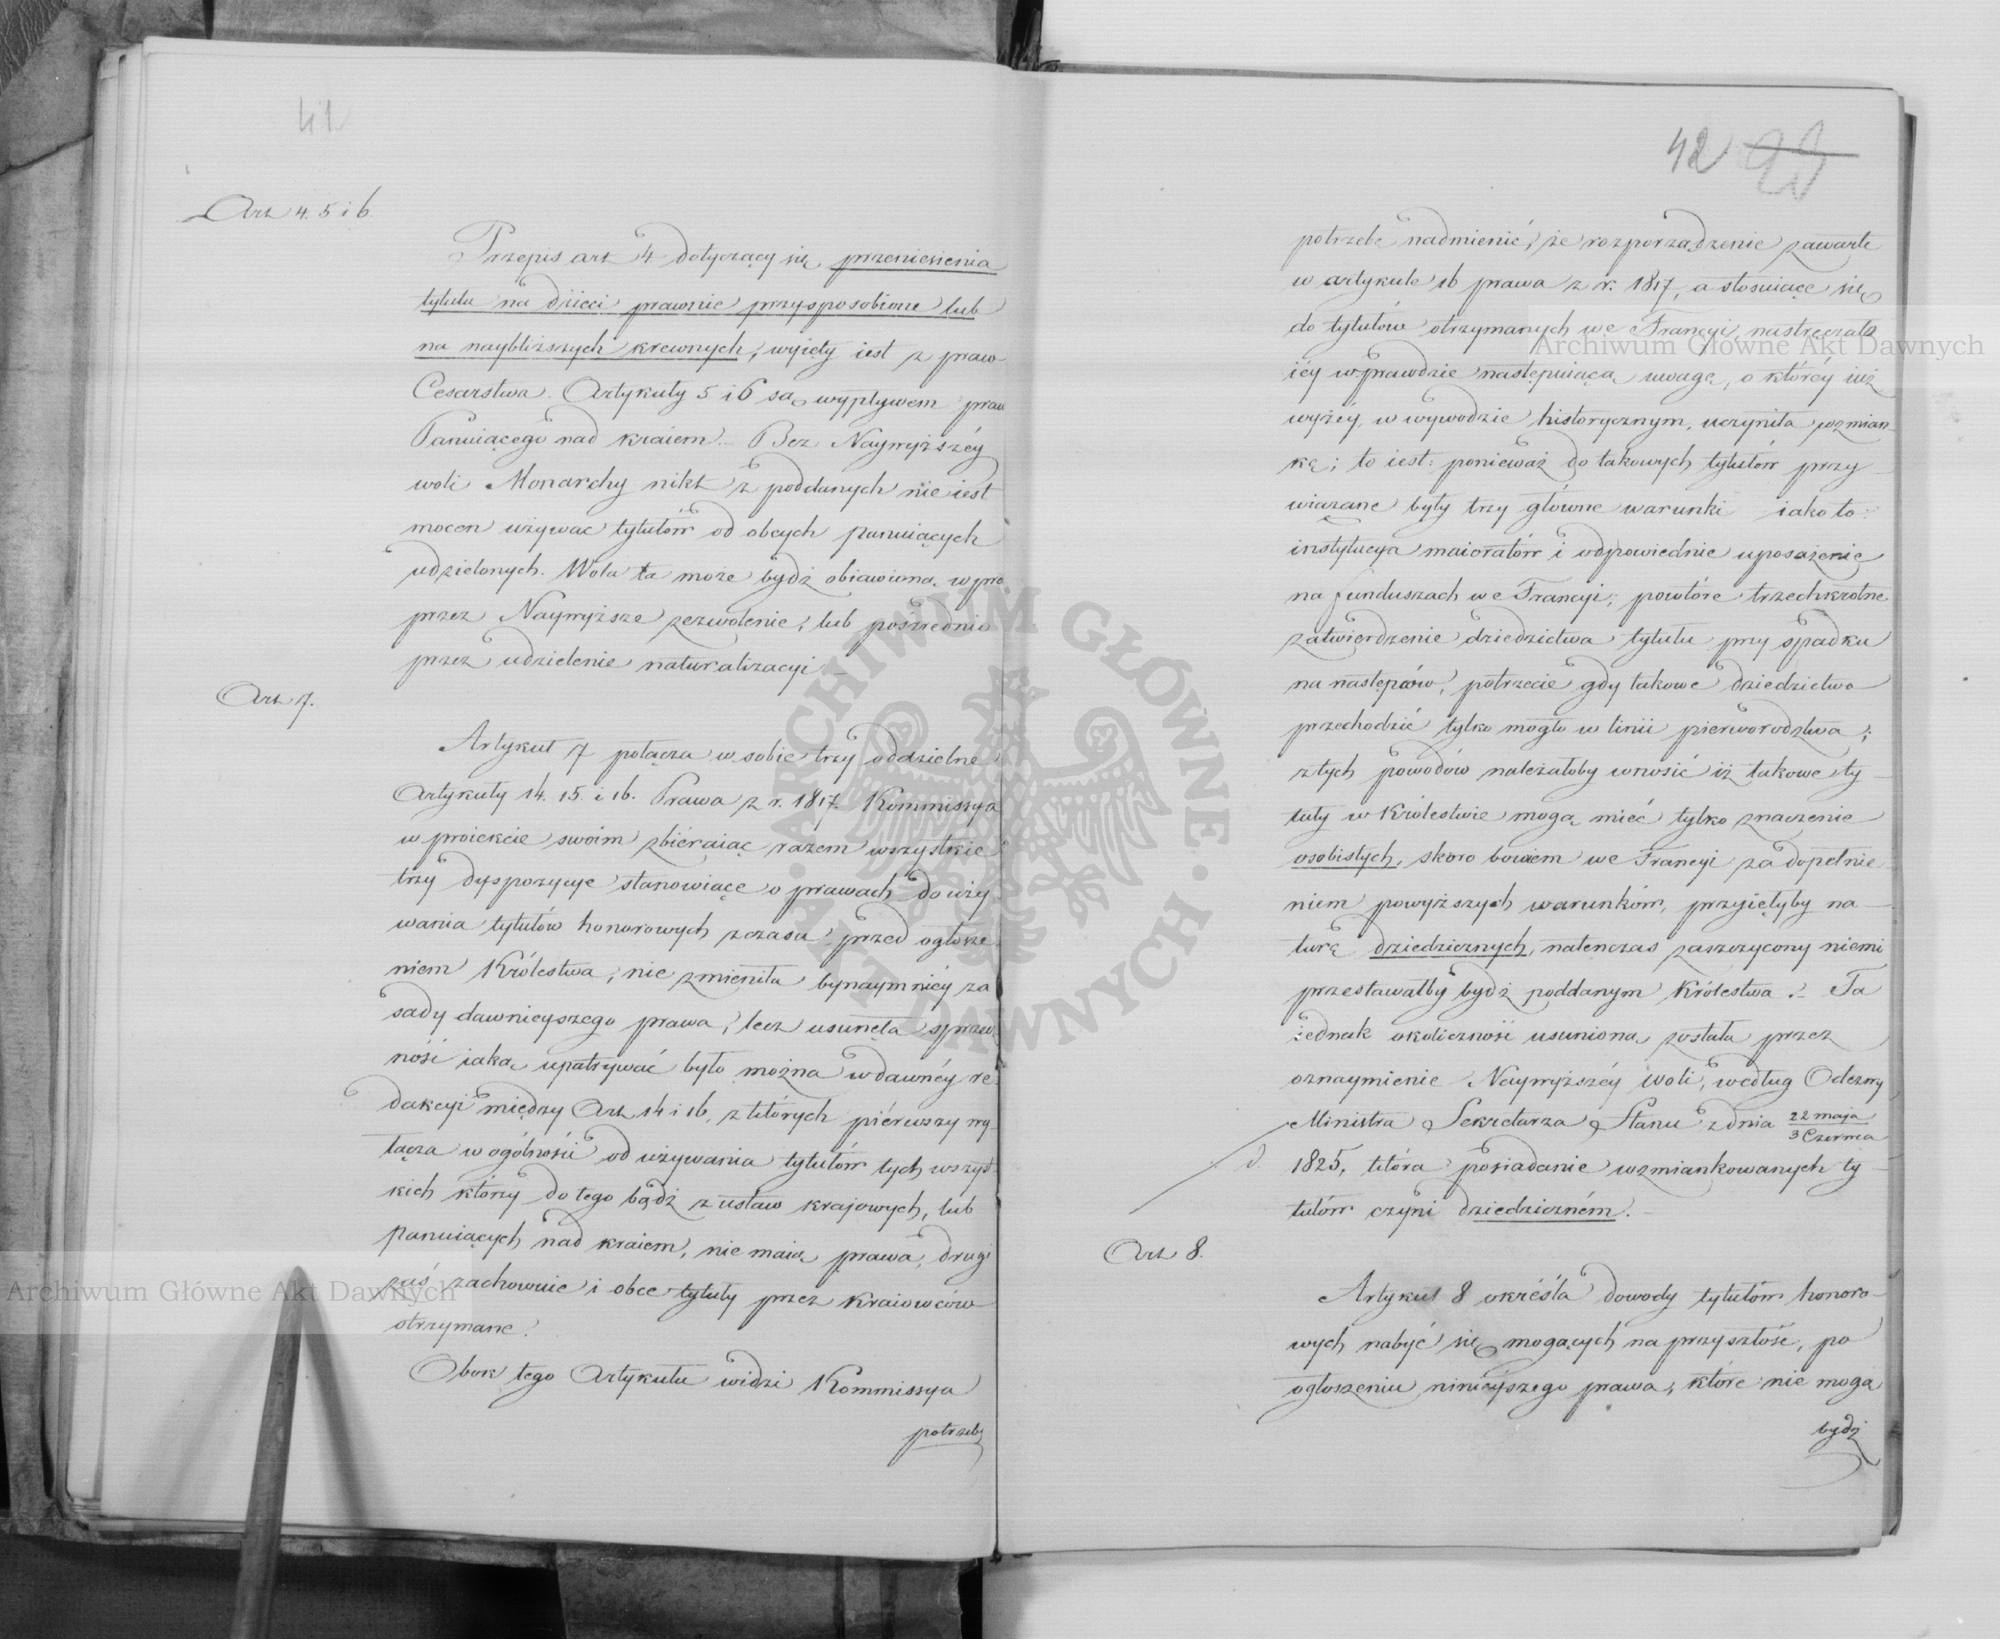 41
Art 4. 5 i 6.
Przepis art 4 dotyczący się przeniesienia
tytułu na dzieci prawnie przysposobione lub
na naybliższych krewnych, wyięty iest z praw
Cesarstwa. Artykuły 5 i 6 są wypływem praw
Panuiącego nad kraiem. Bez Naywyższéy
woli Monarchy nikt z poddanych nie iest
mocen używać tytułów od obcych panuiących
udzielonych. Wola ta może bydź obiawioną wpro
przez Naywyższe zezwolenie, lub pośrednio
przez udzielenie naturalizacyi
Art 7.
Artykuł 7 połącza w sobie trzy oddzielne
Artykuły 14. 15. i 16. Prawa z r. 1817. Kommissya
w proiekcie swoim zbieraiąc razem wszystkie
trzy dyspozycye stanowiące o prawach do uży
wania tytułów honorowych z czasu przed ogłosze
niem Królestwa, nie zmieniła bynaymniéy za
sady dawnieyszego prawa, lecz usunęła sprzecz
ność iaką upatrywać było można w dawnéy re
dakcyi między Art 14 i 16, z których piérwszy wy
łącza w ogólności od używania tytułów tych wszyst
kich którzy do tego bądź z ustaw krajowych, lub
panuiących nad kraiem, nie maią prawa, drugi
zaś zachowuie i obce tytuły przez kraiowców
otrzymane.
Obok tego Artykułu widzi Kommissya
potrzebę
42 93
potrzebę nadmienić, że rozporządzenie zawarte
w artykule 16 prawa z r. 1817, a stosuiące się
do tytułów otrzymanych we Francyi, nastręczało
iéy wprawdzie następuiącą uwagę, o któréy iuż
wyżéy, w wywodzie historycznym, uczyniła wzmian
kę; to iest: ponieważ do takowych tytułów przy
wiązane były trzy główne warunki iako to:
instytucya maioratów i odpowiednie uposażenie
na funduszach we Francyi, powtóre trzechkrotne
zatwierdzenie dziedzictwa tytułu przy spadku
na następców, potrzecie gdy takowe dziedzictwo
przechodzić tylko mogło w linii pierworodztwa;
z tych powodów należałoby wnosić iż takowe ty
tuły w Królestwie mogą mieć tylko znaczenie
osobistych, skoro bowiem we Francyi za dopełnie
niem powyższych warunków, przyiętyby na
turę dziedzicznych, natenczas zaszczycony niemi
przestawałby bydź poddanym Królestwa. Ta
jednak okoliczność usuniona została przez
oznaymienie Naywyższéy woli, według Odezwy
Ministra Sekretarza Stanu z dnia 22 maja / 3 Czerwca
1825, która posiadanie wzmiankowanych ty
tułów czyni dziedziczném.
Art 8.
Artykuł 8 określa dowody tytułów honoro
wych nabyć się mogących na przyszłość, po
ogłoszeniu ninieyszego prawa, które nie mogą
bydź
Archiwum Główne Akt Dawnych
Archiwum Główne Akt Dawnych
ARCHIWUM GŁÓWNE AKT DAWNYCH